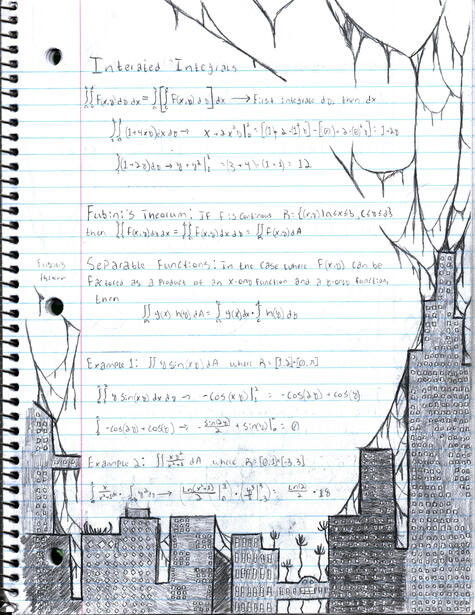 Interated Integrals
∫∫ F(x,y) dy dx = ∫[∫ F(x,y) dy] dx → First integrate dy, then dx
∫∫ (1+4xy) dx dy → x + 2x²y]₀¹ = [(1) + 2·(1)²y] - [(0) + 2·(0)²y] = 1+2y
∫(1+2y) dy → y + y²]₁³ = (3+9) - (1+1) = 12
Fubini's Theorem: IF F is continous R = {(x,y) | a≤x≤b, c≤y≤d}
then ∫∫ F(x,y) dy dx = ∫∫ F(x,y) dx dy = ∬ F(x,y) dA
Fubini's
theorem
Separable Functions: In the case where F(x,y) can be
Factored as a Product of an x-only function and a y-only function,
then
∬ g(x) h(y) dA = ∫ g(x) dx · ∫ h(y) dy
Example 1: ∬ y sin(xy) dA where R = [1,2]×[0,π]
∫∫ y sin(xy) dx dy → -cos(xy)]₁² = -cos(2y) + cos(y)
∫ -cos(2y) + cos(y) → -sin(2y)/2 + sin(y)]₀ = 0
Example 2: ∬ xy²/x²+1 dA where R = [0,1]×[-3,3]
∫ x/x²+1 dx · ∫ y² dy → Ln(x²+1)/2 ]₀¹ · y³/3 ]₋₃³ = Ln|2|/2 · 18